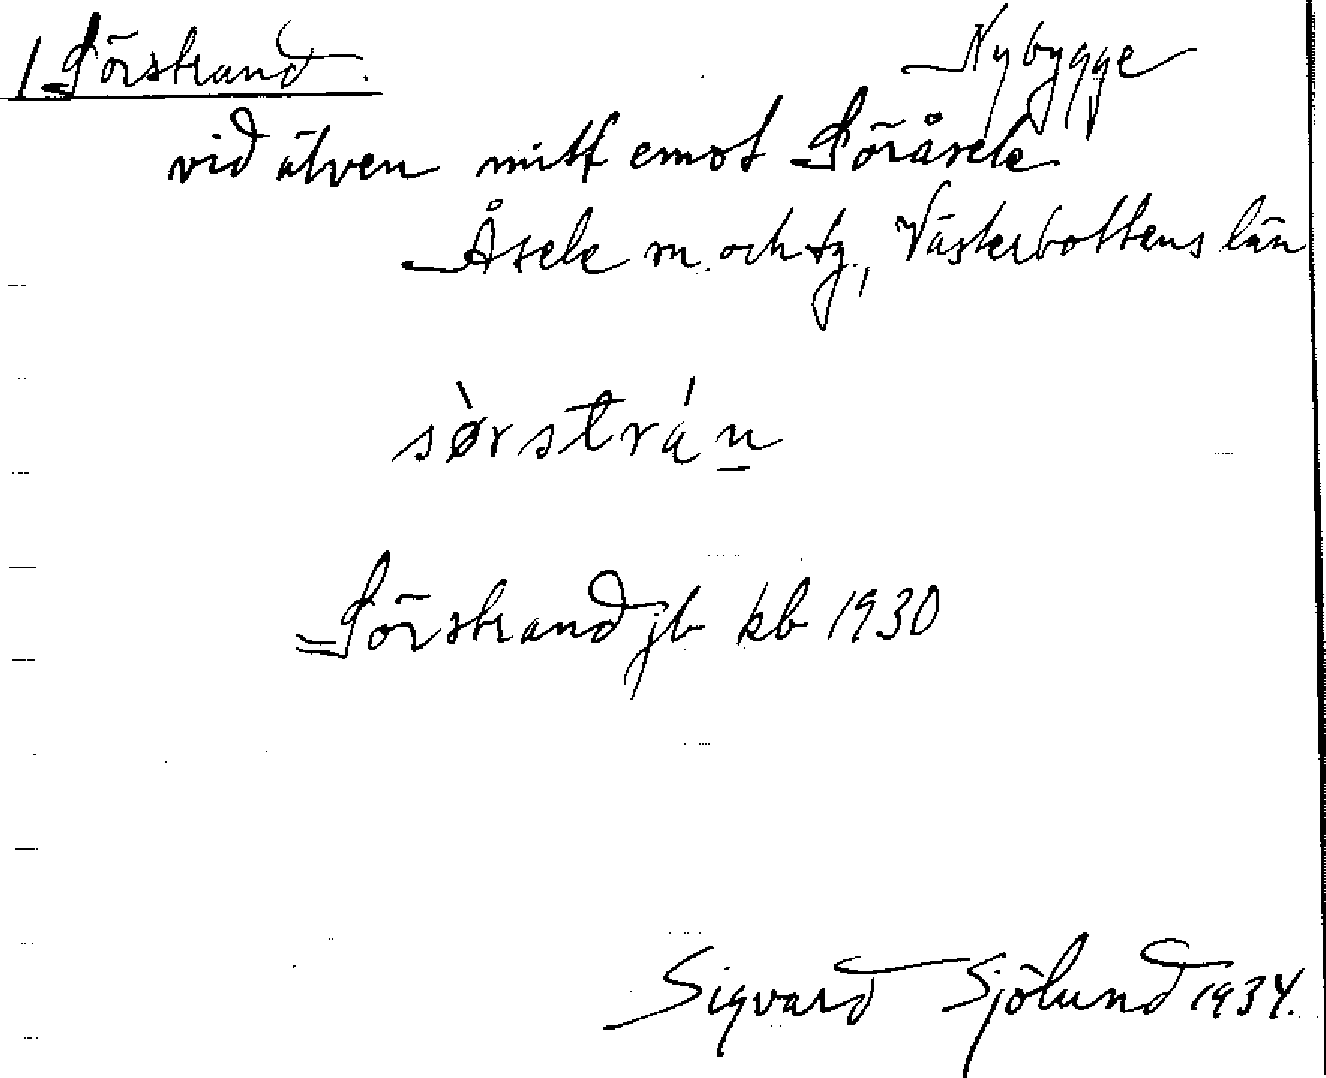 1 Sörstrand. Nybygge
vid älven mitt emot Söråsele
Åsele sn. och tg., Västerbottens län
sø̀rstrán̲
Sörstrand jb kb 1930
Sigvard Sjölund 1934.